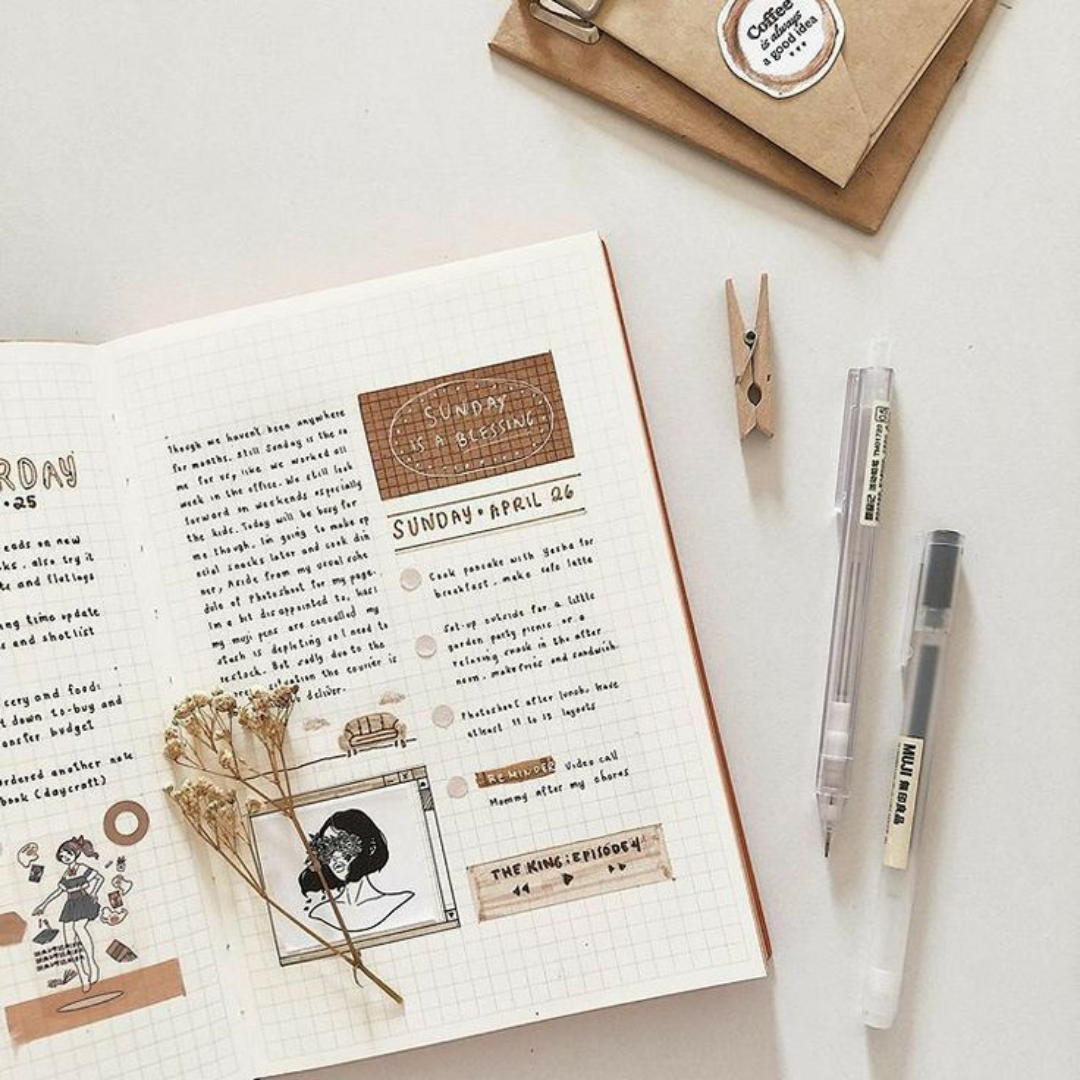 Coffee
is always
a good idea
RDAY
•25
eads on new
ks, also try it
te and flatlays
ng time update
s and shotlist
cery and food:
t down to-buy and
ansfer budget
ordered another note
book (daycraft)
Though we haven't been anywhere
for months, still Sunday is the so
me for us, like we worked all
week in the office. We still look
forward on weekends especially
the kids. Today will be busy for
me though, im going to make sp
ecial snacks later and cook din
ner, Aside from my usual sche
dule of Photoshoot for my page.
Im a bit disappointed to, hasi
my muji pens are cancelled my
stash is depleting so I need to
restock. But sadly due to the
situation the courier is
deliver.
SUNDAY
IS A BLESSING
SUNDAY • APRIL 26
Cook pancake with Yesha for
breakfast, make latte
Set-up outside for a little
garden party picnic, or a
relaxing snack in the after
noon, make fries and sandwich
Photoshoot after lunch, have
atleast 11 to 15 layouts
REMINDER Video call
Mommy after my chores
THE KING: EPISODE 4
05
TM01720
MUJI 無印良品